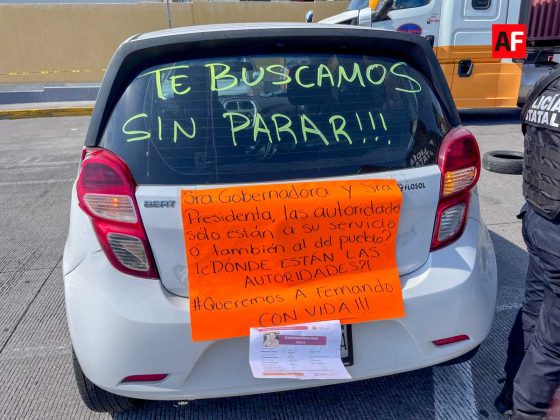 AF
TE BUSCAMOS
SIN PARAR!!!
BEAT
FLOSOL
Sra Gobernadora Y Sra
Presidenta, las autoridade
sólo están a su servicio
o también al del pueblo?
¿DÓNDE ESTÁN LAS
AUTORIDADES?!
#Queremos A Fernando
CON VIDA!!!
LICÍA
STATAL